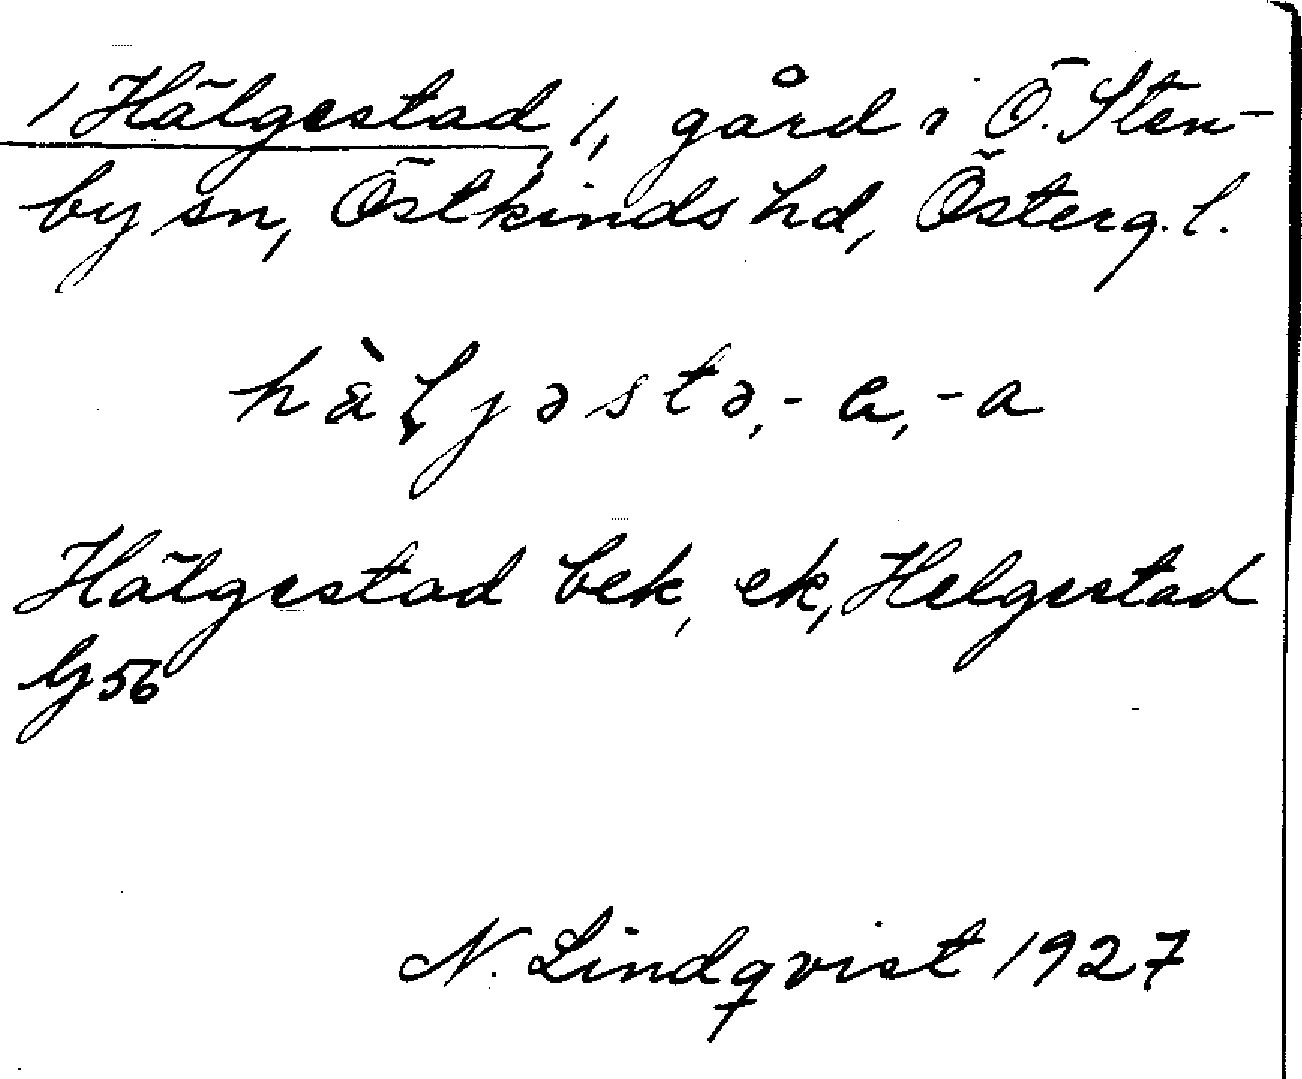 /Hälgestad, /, gård i Ö. Sten-
by sn, Östkinds hd, Österg. l.
hàļjəstə, -a, -a
Hälgestad bek, ek, Helgestad
G 56
N. Lindqvist 1927